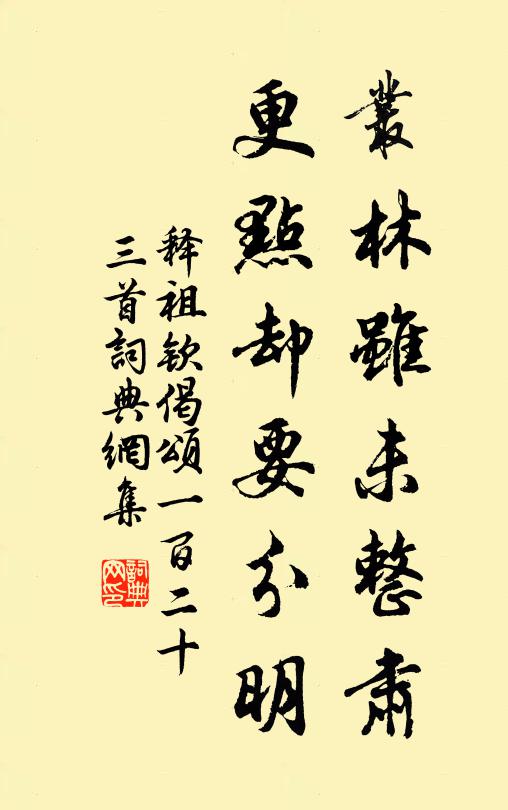 叢林雖未整肅
更點却要分明
释祖欽偈頌一百二十
三首詞典網集
詞典網印